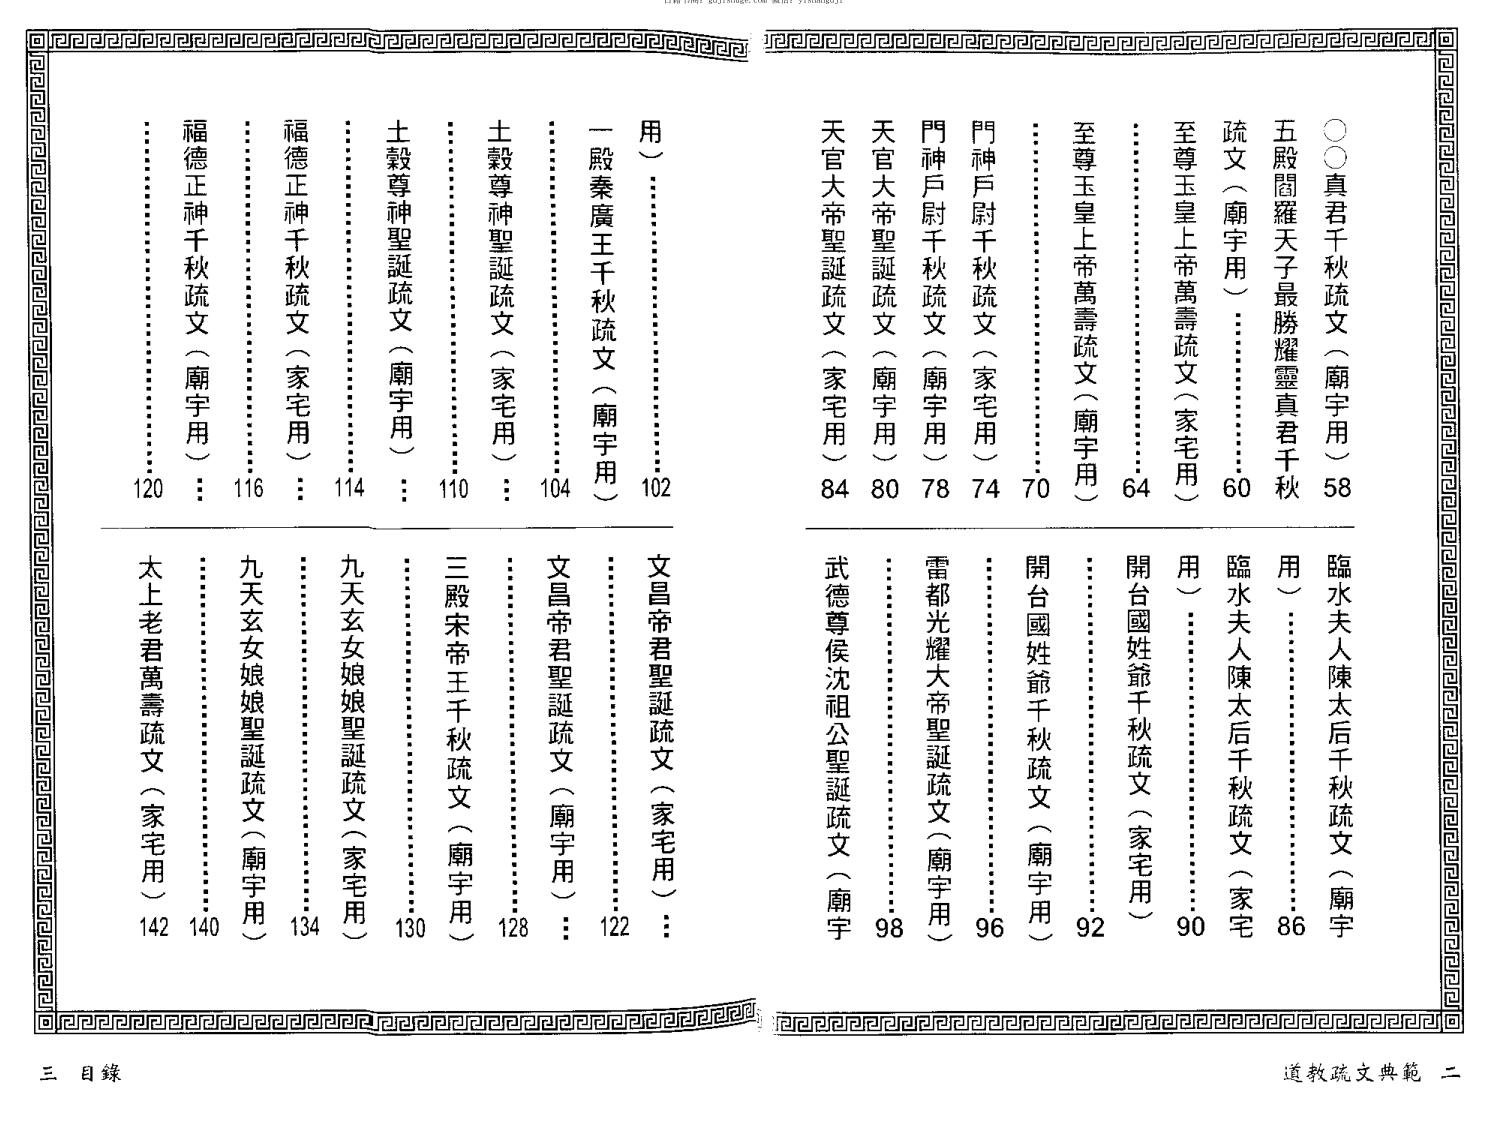 〇〇真君千秋疏文（廟宇用）58
五殿閻羅天子最勝耀靈真君千秋
疏文（廟宇用）…………60
至尊玉皇上帝萬壽疏文（家宅用）
…………………………64
至尊玉皇上帝萬壽疏文（廟宇用）
…………………………70
門神戶尉千秋疏文（家宅用）74
門神戶尉千秋疏文（廟宇用）78
天官大帝聖誕疏文（廟宇用）80
天官大帝聖誕疏文（家宅用）84
臨水夫人陳太后千秋疏文（廟宇
用）……………………86
臨水夫人陳太后千秋疏文（家宅
用）……………………90
開台國姓爺千秋疏文（家宅用）
…………………………92
開台國姓爺千秋疏文（廟宇用）
…………………………96
雷都光耀大帝聖誕疏文（廟宇用）
…………………………98
武德尊侯沈祖公聖誕疏文（廟宇
道教疏文典範 二
用）……………………102
一殿秦廣王千秋疏文（廟宇用）
…………………………104
土穀尊神聖誕疏文（家宅用）…
…………………………110
土穀尊神聖誕疏文（廟宇用）…
…………………………114
福德正神千秋疏文（家宅用）…
…………………………116
福德正神千秋疏文（廟宇用）…
…………………………120
文昌帝君聖誕疏文（家宅用）…
…………………………122
文昌帝君聖誕疏文（廟宇用）…
…………………………128
三殿宋帝王千秋疏文（廟宇用）
…………………………130
九天玄女娘娘聖誕疏文（家宅用）
…………………………134
九天玄女娘娘聖誕疏文（廟宇用）
…………………………140
太上老君萬壽疏文（家宅用）142
三 目錄